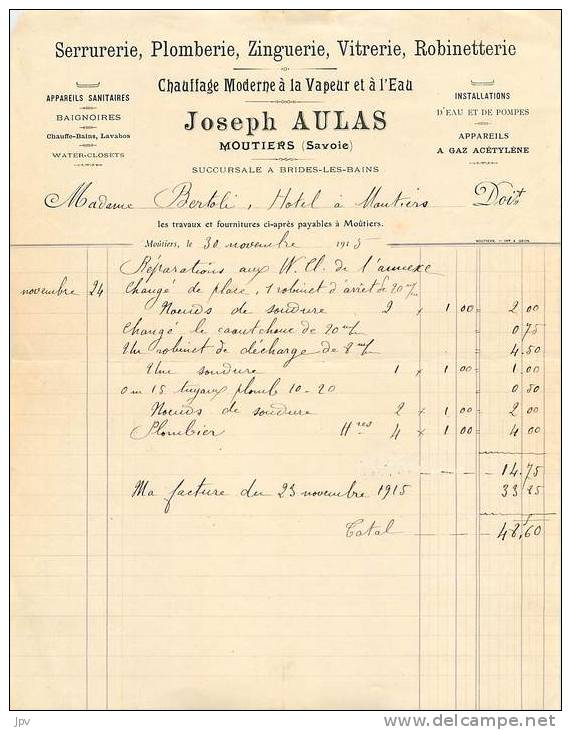 Serrurerie, Plomberie, Zinguerie, Vitrerie, Robinetterie
Chauffage Moderne à la Vapeur et à l'Eau
APPAREILS SANITAIRES
BAIGNOIRES
Chauffe-Bains, Lavabos
WATER-CLOSETS
Joseph AULAS
MOUTIERS (Savoie)
SUCCURSALE A BRIDES-LES-BAINS
INSTALLATIONS
D'EAU ET DE POMPES
APPAREILS
A GAZ ACÉTYLÈNE
Madame Bertoli, Hotel à Moutiers Doit
les travaux et fournitures ci-après payables à Moûtiers.
Moûtiers, le 30 novembre 1915
Réparations aux W. Cl. de l'annexe
novembre 24 Changé de place, 1 robinet d'arrêt de 20 m/m
Noeuds de soudure 2 x 1 00 = 2 00
Changé le caoutchouc de 20 m/m 0 75
Un robinet de décharge de 8 m/m 4.50
Une soudure 1 x 1 00 = 1.00
0 m 15 tuyaux plomb 10-20 0 50
Noeuds de soudure 2 x 1 00 = 2 00
Plombier Hres 4 x 1 00 = 4 00
14.75
Ma facture du 23 novembre 1915
Total 48,60
jpv
delcampe.net